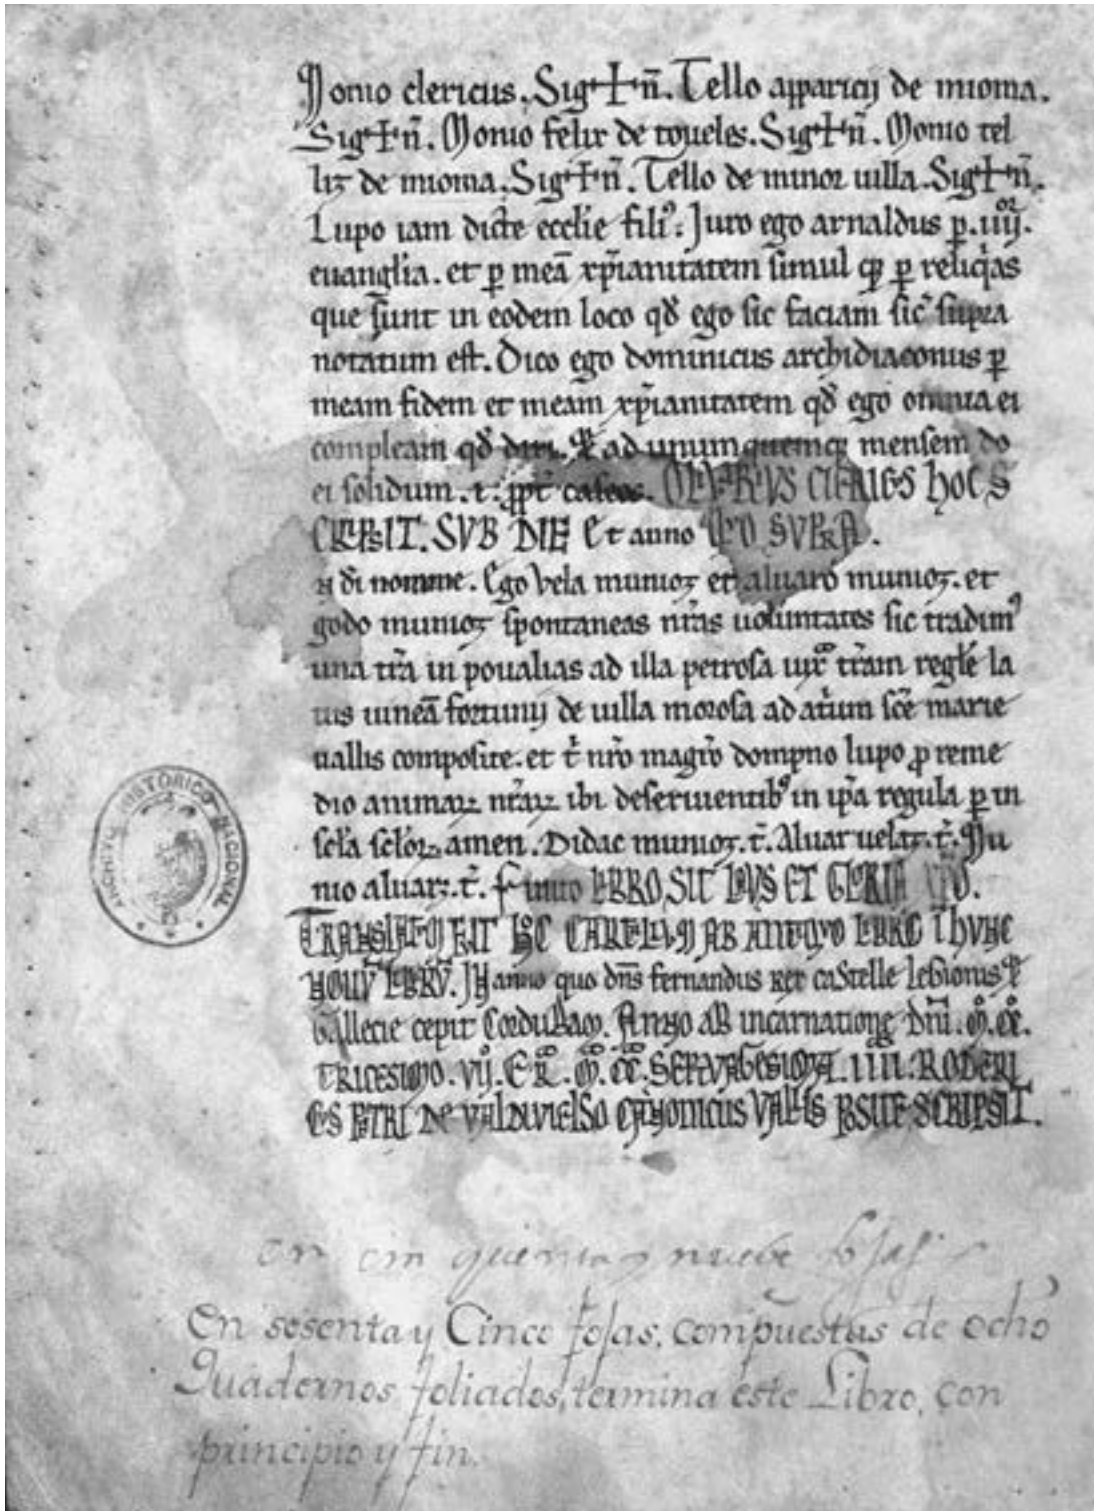 Monio clericus. Sig+n̄. Tello apparicij de mioma.
Sig+n̄. Monio felix de toueles. Sig+n̄. Monio tel
liz de mioma. Sig+n̄. Tello de minor uilla. Sig+n̄.
Lupo iam dicte ecclie fili⁹. Juro ego arnaldus p̱. iiij.or
euanglia. et p̱ meā xp̄ianitatem simul q̄ p̱ reliq̄as
que sunt in eodem loco qđ ego sic faciam sic̄ supra
notatum est. Dico ego dominicus archidiaconus p̱
meam fidem et meam xp̄ianitatem qđ ego omnia ei
compleam qđ dixi. ad unum quemq̄ mensem do
ei solidum. i. ppt̄ caseos. HOC S
CRIPSIT. SVB DIE Et anno QVO SVPRA.
N di nomine. Ego vela munioz et aluaro munioz. et
godo munioz spontaneas nr̄as uoluntates sic tradim⁹
una tr̄a in poualias ad illa petrosa iux̄ tr̄am regl̄e la
tus uineā fortunij de uilla morosa ad atrium sc̄e marie
uallis composite. et t̄ nr̄o magr̄o dompno lupo p̱ reme
dio animaꝝ nr̄aꝝ ibi deseruientib⁹ in ip̄a regula p̱ in
scl̄a scl̄oꝝ amen. Didac munioz. t̄. Aluar uelaz. t̄. Mu
nio aluarz. t̄. finito LIBRO, SIT LAVS ET GLORIA XPO.
TRANSLATVM FVIT HOC CARTARIVM AB ANTIQVO LIBRO IN HVNC
NOVV̄ LIBRV̄. IN anno quo dn̄s fernandus rex caStelle leGionis &
Gallecie cepit CorduBam. Anno aB incarnatione Dn̄i. M̊. CC̊.
TRICESIMO. VIJ̊. ER̊. M̊. CC̊. SEPTVAGESIMA. IIII. RODERI
CVS PETRI DE VALDIVIELSO CANONICUS VALLIS POSITE SCRIPSIT.
en cin quenta y nuebe fojas
En sesenta y Cinco fojas, compuestas de ocho
Quadernos foliados, termina este Libro, con
principio y fin.
ARCHIVO HISTORICO NACIONAL